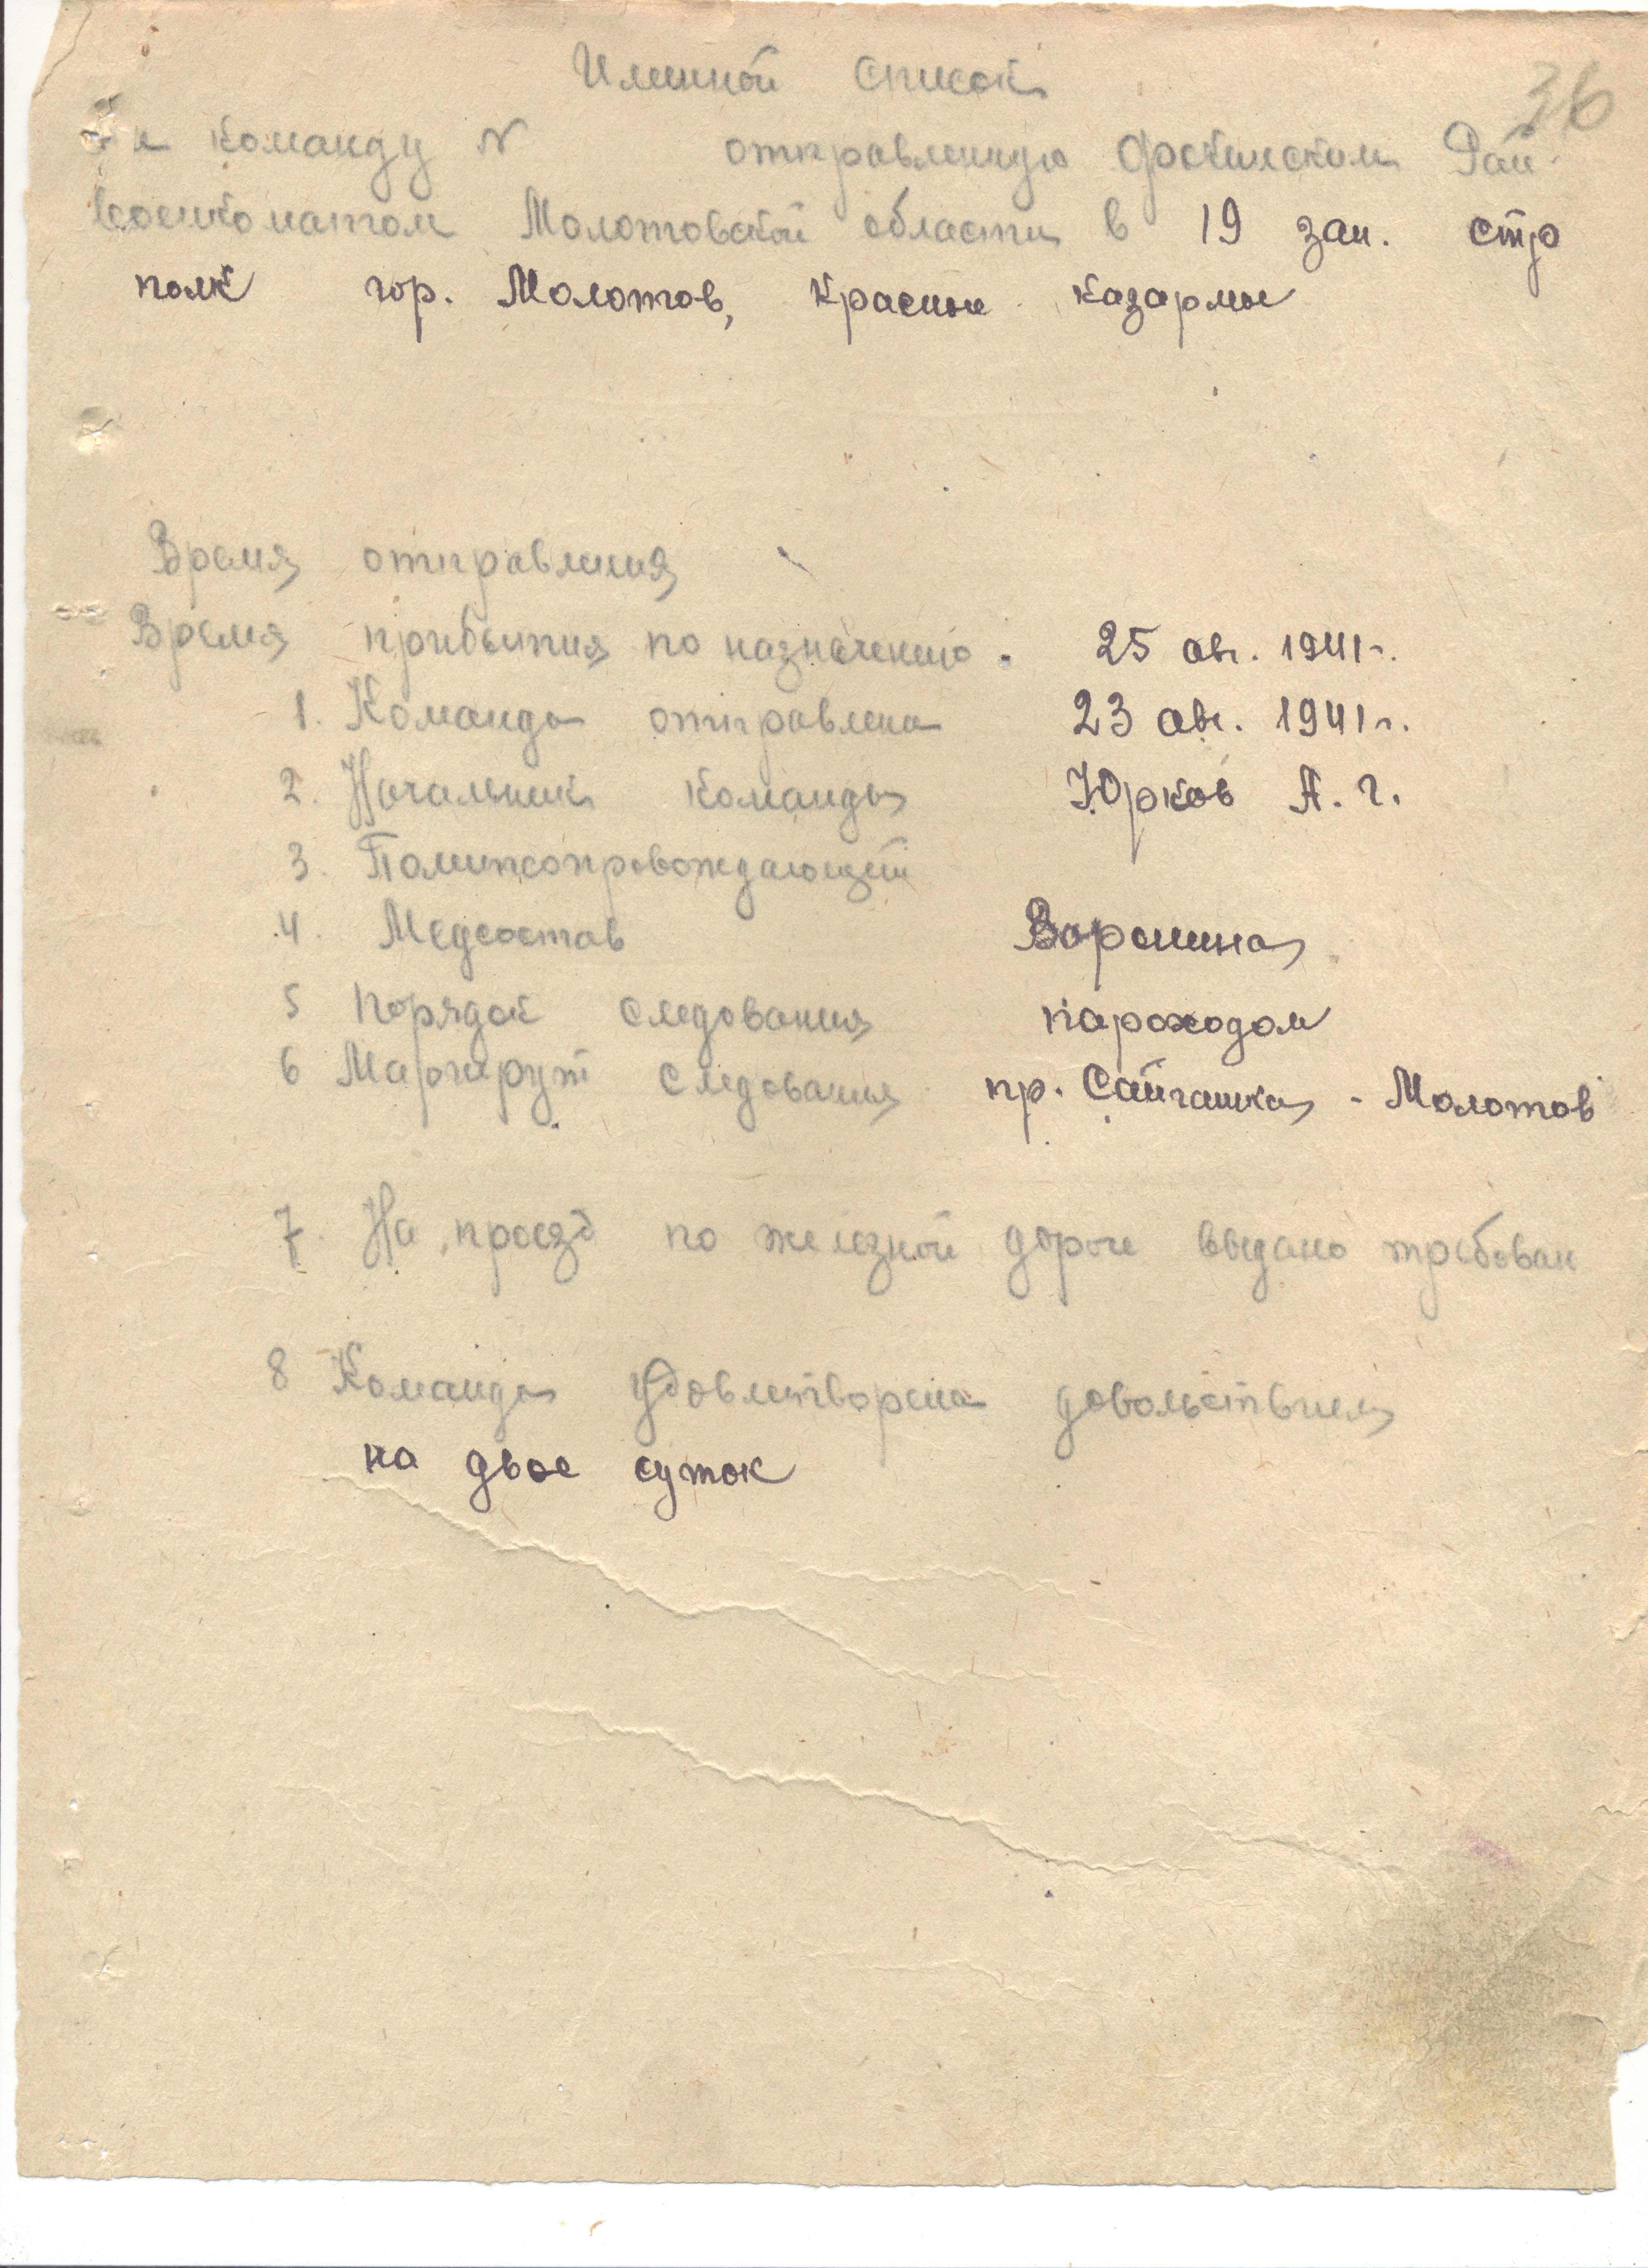 Именной список
36
на команду N отправленную Фокинским Рай
военкоматом Молотовской области в 19 зап. стр
полк гор. Молотов, Красные казармы
Время отправления
Время прибытия по назначению. 25 авг. 1941г.
1. Команда отправлена 23 авг. 1941г.
2. Начальник команды Юрков А. Г.
3. Политсопровождающий
4. Медсостав Воронина
5 Порядок следования пароходом
6 Маршрут следования пр. Сайгатка - Молотов
7. На проезд по железной дороге выдано требован
8 Команда удовлетворена довольствием
на двое суток